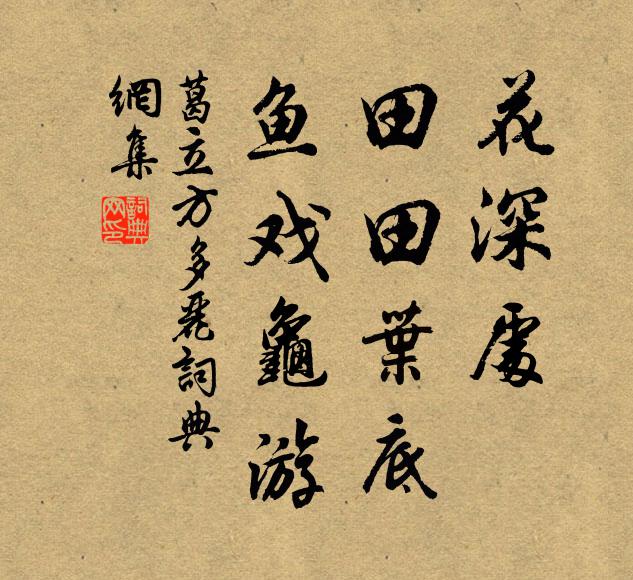 花深處
田田葉底
鱼戏龜游
葛立方多麗詞典
網集
詞典
网印